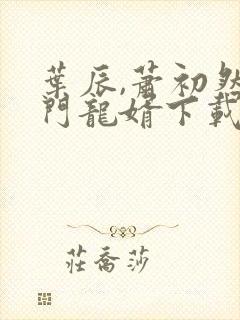 葉辰,蕭初然
門龍婿下載
莊喬莎